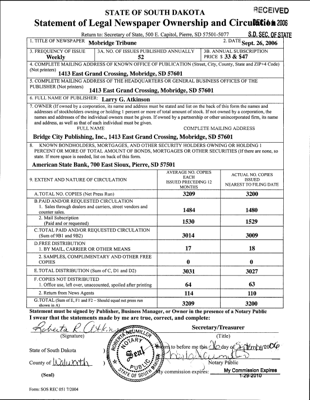 STATE OF SOUTH DAKOTA
RECEIVED
Statement of Legal Newspaper Ownership and Circulation
2006
Return to: Secretary of State, 500 E. Capitol, Pierre, SD 57501-5077
S.D. SEC. OF STATE
1. TITLE OF NEWSPAPER
Mobridge Tribune
2. DATE
Sept. 26, 2006
3. FREQUENCY OF ISSUE
Weekly
3A. NO. OF ISSUES PUBLISHED ANNUALLY
52
3B. ANNUAL SUBSCRIPTION
PRICE $ 33 & $47
4. COMPLETE MAILING ADDRESS OF KNOWN OFFICE OF PUBLICATION (Street, City, County, State and ZIP+4 Code)
(Not printers)
1413 East Grand Crossing, Mobridge, SD 57601
5. COMPLETE MAILING ADDRESS OF THE HEADQUARTERS OR GENERAL BUSINESS OFFICES OF THE
PUBLISHER (Not printer)
1413 East Grand Crossing, Mobridge, SD 57601
6. FULL NAME OF PUBLISHER:
Larry G. Atkinson
7. OWNER (If owned by a corporation, its name and address must be stated and list on the back of this form the names and
addresses of stockholders owning or holding 1 percent or more of total amount of stock. If not owned by a corporation, the
names and addresses of the individual owners must be given. If owned by a partnership or other unincorporated firm, its name
and address, as well as that of each individual must be given.
FULL NAME
COMPLETE MAILING ADDRESS
Bridge City Publishing, Inc., 1413 East Grand Crossing, Mobridge, SD 57601
8. KNOWN BONDHOLDERS, MORTGAGES, AND OTHER SECURITY HOLDERS OWNING OR HOLDING 1
PERCENT OR MORE OF TOTAL AMOUNT OF BONDS, MORTGAGES OR OTHER SECURITIES (If there are none, so
state. If more space is needed, list on back of this form.
American State Bank, 700 East Sioux, Pierre, SD 57501
9. EXTENT AND NATURE OF CIRCULATION
AVERAGE NO. COPIES
EACH
ISSUED PRECEDING 12
MONTHS
ACTUAL NO. COPIES
ISSUED
NEAREST TO FILING DATE
A.TOTAL NO. COPIES (Net Press Run)
3209
3200
B.PAID AND/OR REQUESTED CIRCULATION
1. Sales through dealers and carriers, street vendors and
counter sales.
1484
1480
2. Mail Subscription
(Paid and or requested)
1530
1529
C.TOTAL PAID AND/OR REQUESTED CIRCULATION
(Sum of 9B1 and 9B2)
3014
3009
D.FREE DISTRIBUTION
1. BY MAIL, CARRIER OR OTHER MEANS
17
18
2. SAMPLES, COMPLIMENTARY AND OTHER FREE
COPIES
0
0
E.TOTAL DISTRIBUTION (Sum of C, D1 and D2)
3031
3027
F.COPIES NOT DISTRIBUTED
1. Office use, left over, unaccounted, spoiled after printing
64
63
2. Return from News Agents
114
110
G.TOTAL (Sum of E, F1 and F2 - Should equal net press run
shown in A)
3209
3200
Statement must be signed by Publisher, Business Manager, or Owner in the presence of a Notary Public
I swear that the statements made by me are true, correct, and complete:
Secretary/Treasurer
(Signature)
(Title)
State of South Dakota
County of Walworth
(Seal)
Seal
to before me this 26 day of September 2006
Notary Public
My commission expires:
My Commission Expires
1-29-2010
Form: SOS REC 051 7/2004